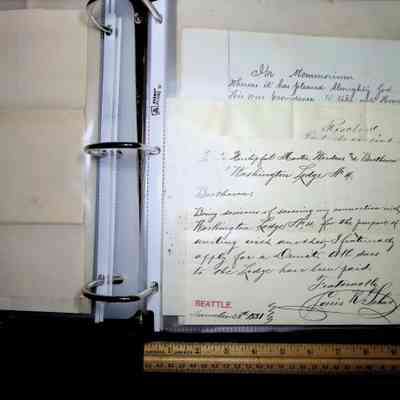 In Memmorium
Whereas it has pleased Almighty God
His wise providence to take
To Worshipful Master Wardens & Brethren
Washington Lodge No 4.
Brethern:
Being desirous of severing my connection with
Washington Lodge No 4, for the purpose of
uniting with another, I fraternally
apply for a Demit. All dues
to the Lodge have been paid.
Fraternally
Louis
SEATTLE,